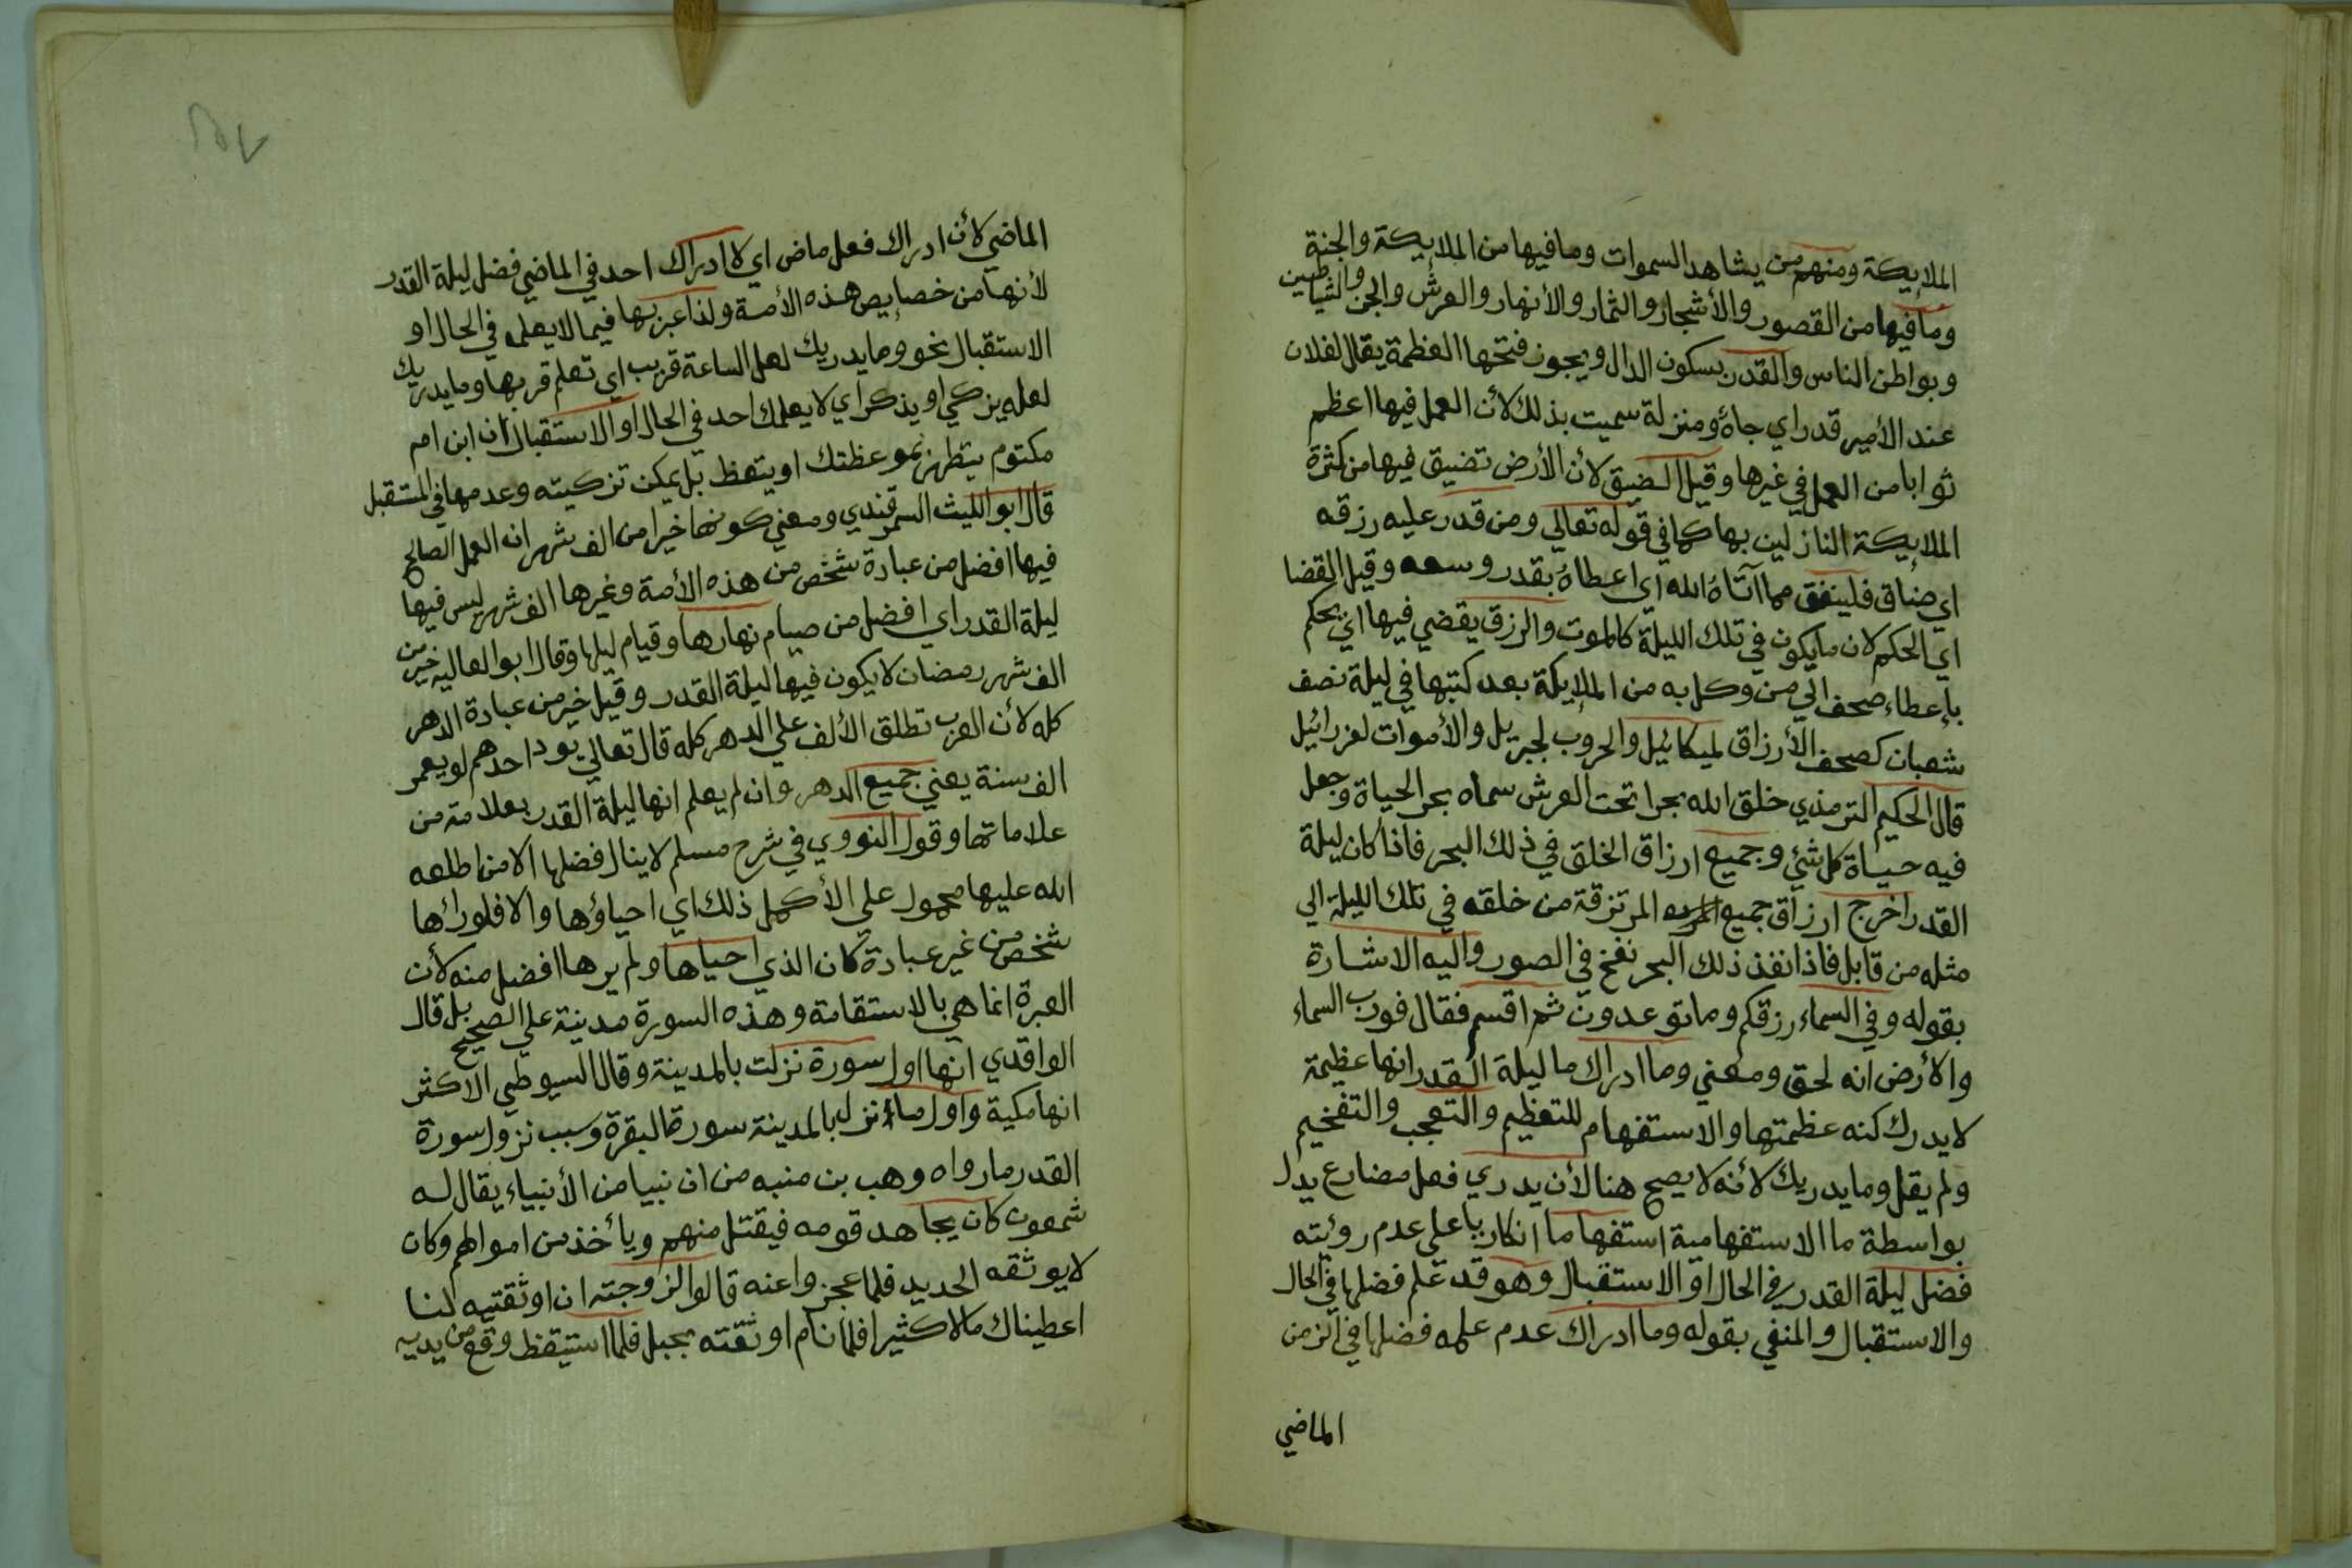 الملايكة ومنهم من يشاهد السموات وما فيها من الملايكة والجنة
وما فيها من القصور والأشجار والثمار والأنهار والعرش والجن والشياطين
وبواطن الناس والقدر بسكون الدال ويجوز فتحها العظمة يقال لفلان
عند الأمير قدر اي جاه ومنزلة سميت بذلك لأن العمل فيها اعظم
ثوابا من العمل في غيرها وقيل الضيق لأن الأرض تضيق فيها من كثرة
الملايكة النازلين بها كما في قوله تعالي ومن قدر عليه رزقه
اي ضاق فلينفق مما آتاه الله اي اعطاه بقدر وسعه وقيل القضا
اي الحكم لان ما يكون في تلك الليلة كالموت والرزق يقضي فيها اي يحكم
بإعطاء صحف الي من وكل به من الملايكة بعد كتبها في ليلة نصف
شعبان كصحف الأرزاق لميكائيل والحروب لجبريل والأموات لعزرائيل
قال الحكيم الترمذي خلق الله بحرا تحت العرش سماه بحر الحياة وجعل
فيه حياة كل شئ وجميع ارزاق الخلق في ذلك البحر فاذا كان ليلة
القدر اخرج ارزاق جميع المرتزقة من خلقه في تلك الليلة الي
مثله من قابل فاذا نفذ ذلك البحر نفخ في الصور واليه الاشارة
بقوله وفي السماء رزقكم وما توعدون ثم اقسم فقال فورب السماء
والأرض انه لحق ومعني وما ادراك ما ليلة القدر انها عظيمة
لا يدرك كنه عظمتها والاستفهام للتعظيم والتعجب والتفخيم
ولم يقل وما يدريك لأنه لا يصح هنا لأن يدري فعل مضارع يدل
بواسطة ما الاستفهامية استفهاما انكاريا على عدم روئته
فضل ليلة القدر في الحال او الاستقبال وهو قد علم فضلها في الحال
والاستقبال والمنفي بقوله وما ادراك عدم علمه فضلها في الزمن
الماضي
الماضي لأن ادراك فعل ماض اي لا ادراك احد في الماضي فضل ليلة القدر
لأنها من خصايص هذه الأمة ولذا عبر بها فيما لا يعلمه في الحال او
الاستقبال نحو وما يدريك لعل الساعة قريب اي تعلم قربها وما يدريك
لعله يزكي او يذكر اي لا يعلمك احد في الحال او الاستقبال ان ابن ام
مكتوم يتطهر بموعظتك او يتعظ بل يمكن تزكيته وعدمها في المستقبل
قال ابو الليث السمرقندي ومعني كونها خيرا من الف شهر ان العمل الصالح
فيها افضل من عبادة شخص من هذه الأمة وغيرها الف شهر ليس فيها
ليلة القدر اي افضل من صيام نهارها وقيام ليلها وقال ابو العاليه خير من
الف شهر رمضان لا يكون فيها ليلة القدر وقيل خير من عبادة الدهر
كله لأن العرب تطلق الألف علي الدهر كله قال تعالي يود احدهم لو يعمر
الف سنة يعني جميع الدهر وان لم يعلم انها ليلة القدر بعلامة من
علاماتها وقول النووي في شرح مسلم لا ينال فضلها الا من اطلعه
الله عليها محمول علي الأكمل ذلك اي احياؤها والا فلو رائها
شخص من غير عبادة كان الذي احياها ولم يرها افضل منه لأن
العبرة انما هي بالاستقامة وهذه السورة مدينة علي الصحيح بل قال
الواقدي انها اول سورة نزلت بالمدينة وقال السيوطي الاكثر
انها مكية واول ما نزل بالمدينة سورة البقرة وسبب نزول سورة
القدر ما رواه وهب بن منبه من ان نبيا من الأنبياء يقال له
شمعون كان يجاهد قومه فيقتل منهم ويأخذ من اموالهم وكان
لا يوثقه الحديد فلما عجزوا عنه قالوا لزوجته ان اوثقتيه لنا
اعطيناك مالا كثيرا فلما نام اوثقته بحبل فلما استيقظ وقع من يديه